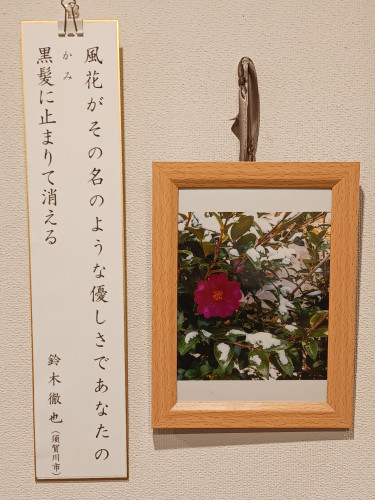 風花がその名のような優しさであなたの
黒髪に止まりて消える
かみ
鈴木徹也(須賀川市)